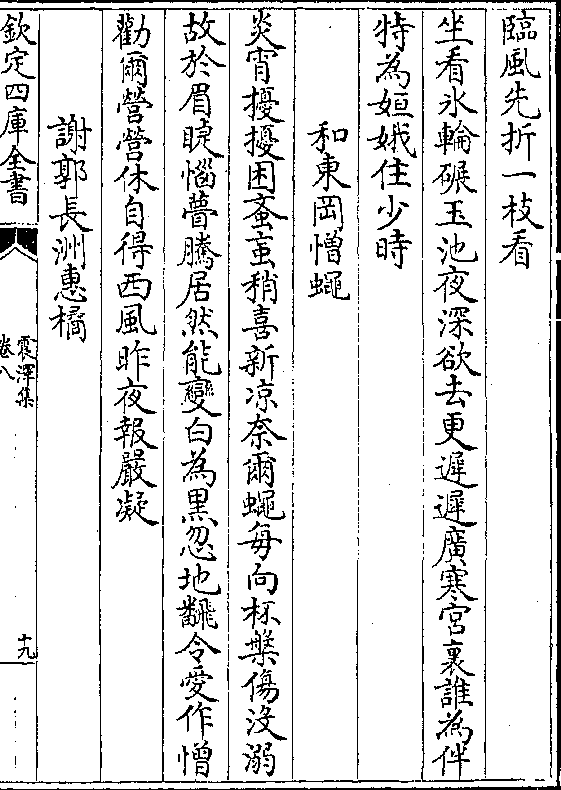 臨風先折一枝看
坐看氷輪碾玉池夜深欲去更遲遲廣寒宮裏誰為伴
特為姮娥住少時
和東岡憎蠅
炎宵擾擾困蚉䖟稍喜新凉奈爾蠅每向杯槃傷没溺
故於眉睫惱瞢騰居然能變白為黒忽地飜令愛作憎
勸爾營營休自得西風昨夜報嚴凝
謝郭長洲惠橘
欽定四庫全書
震澤集
卷八
十九